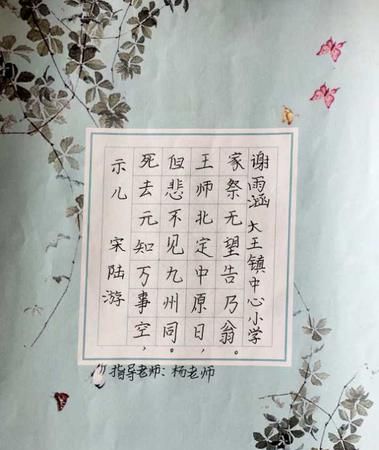 示儿 宋 陆游
死去元知万事空，
但悲不见九州同。
王师北定中原日，
家祭无望告乃翁。
谢雨涵 大王镇中心小学
指导老师：杨老师